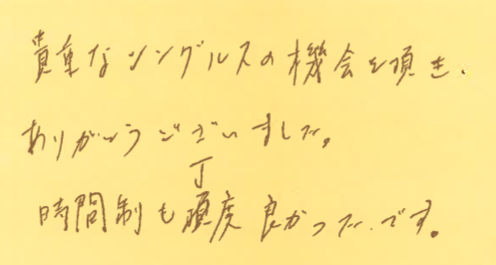 貴重なシングルスの機会を頂き、
ありがとうございました。
丁
時間制も頃度良かったです。